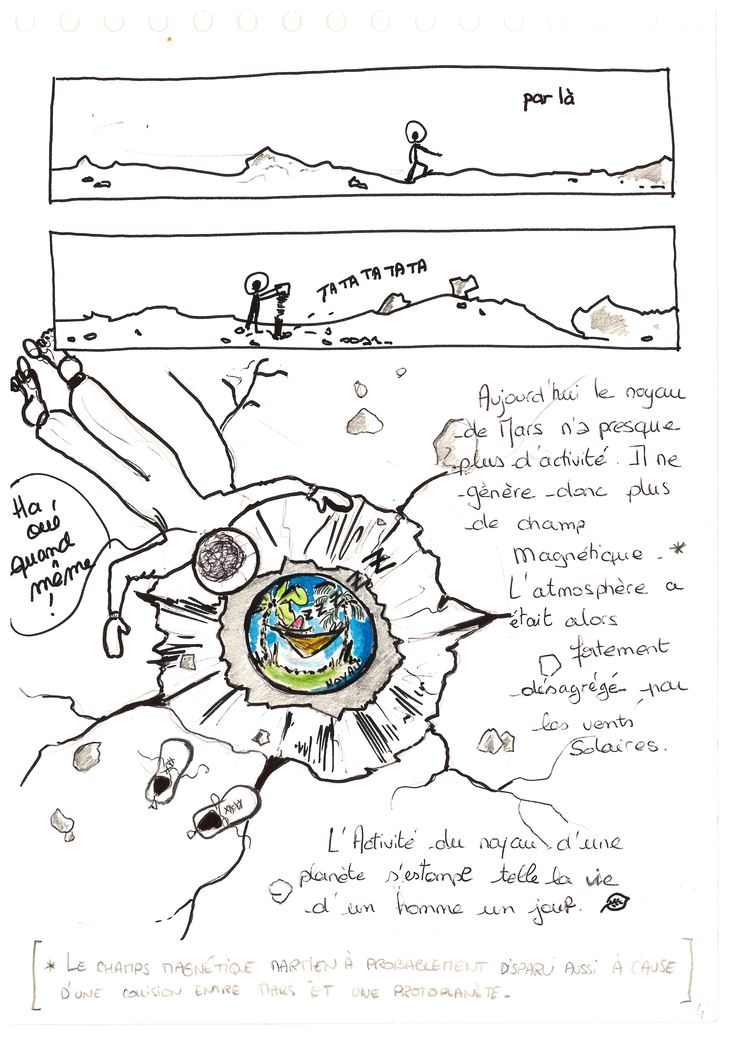 par là
TA TA TA TA TA
Ha
oui
quand
même
!
Aujourd'hui le noyau
de Mars n'a presque
plus d'activité. Il ne
génère donc plus
de champ
magnétique. *
L'atmosphère a
était alors
fortement
désagrégé par
les vents
solaires.
Z
Z
Z
NOYAU
L'Activité du noyau d'une
planète s'estompe telle la vie
d'un homme un jour.
* LE CHAMPS MAGNÉTIQUE MARTIEN À PROBABLEMENT DISPARU AUSSI À CAUSE
D'UNE COLLISION ENTRE MARS ET UNE PROTOPLANÈTE.
4